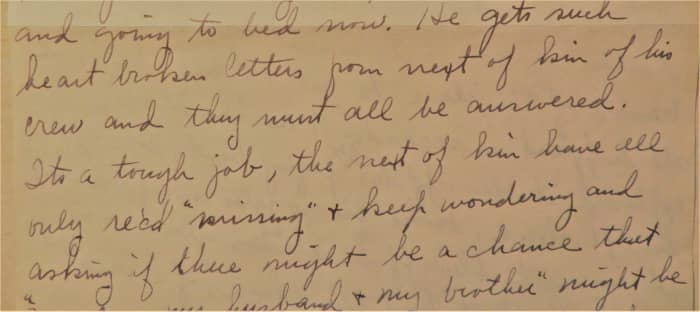 and going to bed now. He gets such
heart broken letters from next of kin of his
crew and they must all be answered.
Its a tough job, the next of kin have all
only rec'd "missing" + keep wondering and
asking if there might be a chance that
my husband + my brother" might be